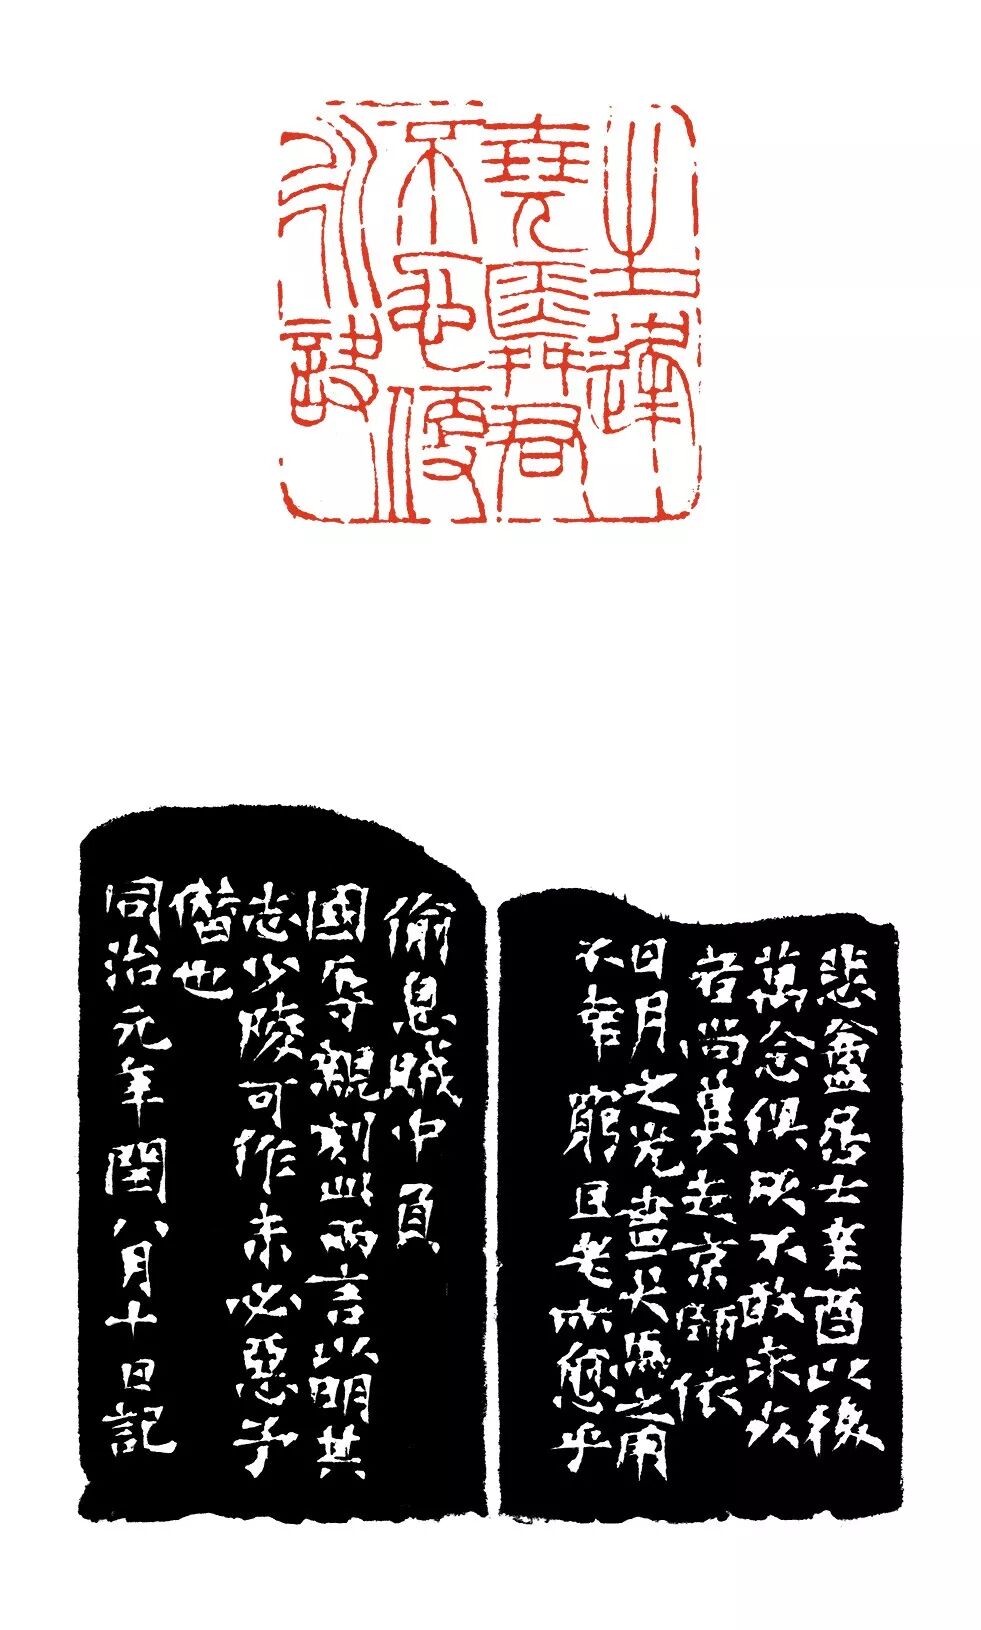 生逢
堯舜君
不忍便
永訣
悲盦居士辛酉以後
萬念俱灰不敢求死
者尚冀走京師依
日月之光盡犬馬之用
不幸窮且老亦愈乎
偷息賊中負
國辱親刻此兩言以明其
志少陵可作未必惡予
僭也
同治元年閏八月十日記